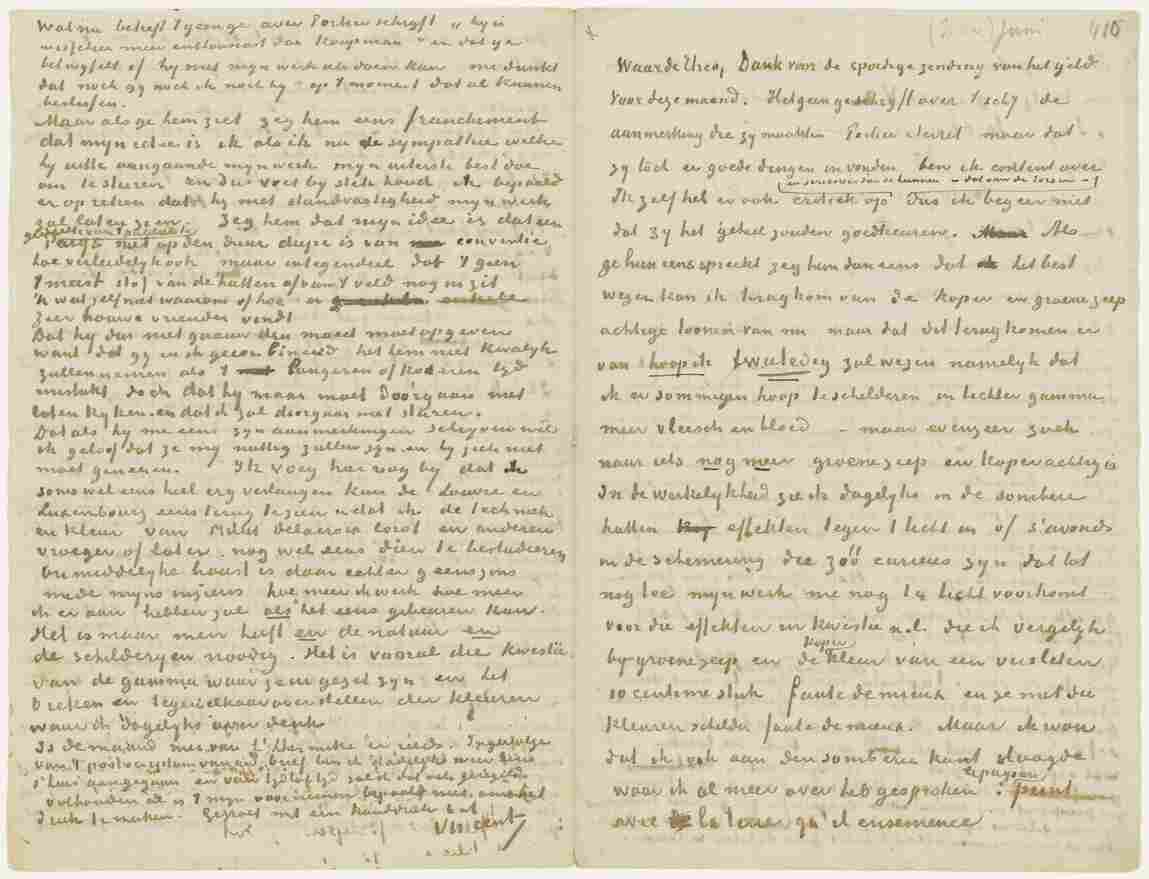 Wat nu betreft 't geen ge over Portier schrijft "hij is
misschien meer enthousiast dan koopman" en dat ge
betwijfelt of hij met mijn werk iets doen kan me dunkt
dat noch gij noch ik noch hij op 't moment dat al kunnen
beslissen.
Maar als ge hem ziet zeg hem eens franchement
dat mijn idee is ik als ik nu de sympathie welke
hij uitte aangaande mijn werk mijn uiterste best doe
om te sturen en die voet bij stek houd ik bepaald
er op reken dat hij met standvastigheid mijn werk
zal laten zien. Zeg hem dat mijn idee is dat een
publiek niet op den duur dupe is van conventie
hoe verleidelijk ook maar integendeel dat 't geen
't meest stof van de hutten of van 't veld nog in zit
'k wat zelf niet waarom of hoe enkele
zeer trouwe vrienden vindt
Dat hij dus niet gaauw den moed moet opgeven
want dat gij en ik gecombineerd het hem niet kwalijk
zullen nemen als 't langeren of korteren tijd
mislukt doch dat hij maar moet doorgaan met
laten kijken en dat ik zal doorgaan met sturen.
Dat als hij me eens zijn aanmerkingen schrijven wil
ik geloof dat ze mij nuttig zullen zijn en hij zich niet
moet geneeren. Ik voeg hier nog bij dat ik
soms wel eens heel erg verlangen kan de Louvre en
Luxembourg eens terug te zien en dat ik de techniek
en kleur van Millet Delacroix Corot en anderen
vroeger of later nog wel eens dien te bestuderen
onmiddelijke haast is daar echter geenszins
mede mijns inziens hoe meer ik werk hoe meer
ik er aan hebben zal als het eens gebeuren kan.
Het is maar men heeft en de natuur en
de schilderijen noodig. Het is vooral die kwestie
van de gamma waar ze in gezet zijn en het
breken en tegen elkaar overstellen der kleuren
waar ik dagelijks over denk
Is de maand mei van L'hermitte er reeds. Ingevolge
van 't postscriptum van uw brief ben ik dadelijk weer eens
t'huis aangegaan en
volhouden al is 't mijn voornemen bepaald niet om het
druk te maken. Gegroet met een handdruk t. à t.
Vincent
(Juni) 410
Waarde Theo, Dank voor de spoedige zending van het geld
voor deze maand. Hetgeen ge schrijft over 't schij de
aanmerking die zij maakten Portier & Serret maar dat
zij toch er goede dingen in vonden ben ik content over
Ik zelf heb er ook critiek op Dus ik begeer niet
dat zij het geheel zouden goedkeuren. Als
ge hun eens spreekt zeg hun dan eens dat het best
wezen kan ik terugkom van de koper en groene zeep
achtige toonen van nu maar dat dit terugkomen er
van hoop ik tweeledig zal wezen namelijk dat
ik er sommigen hoop te schilderen in lichter gamma
meer vleesch en bloed - maar evenzeer zoek
naar iets nog meer groene zeep en koperachtigs
In de werkelijkheid zie ik dagelijks in de sombere
hutten effekten tegen 't licht in of s'avonds
in de schemering die zóó curieus zijn dat tot
nog toe mijn werk me nog te licht voorkomt
voor die effekten in kwestie n.l. die ik vergelijk
bij groene zeep en de koper kleur van een versleten
10 centime stuk faute de mieux en ze met die
kleuren schilder faute de mieux. Maar ik wou
dat ik ook aan den somberen kant slaagde
waar ik al meer over heb gesproken: le paysan peint
avec la terre qu'il ensemence